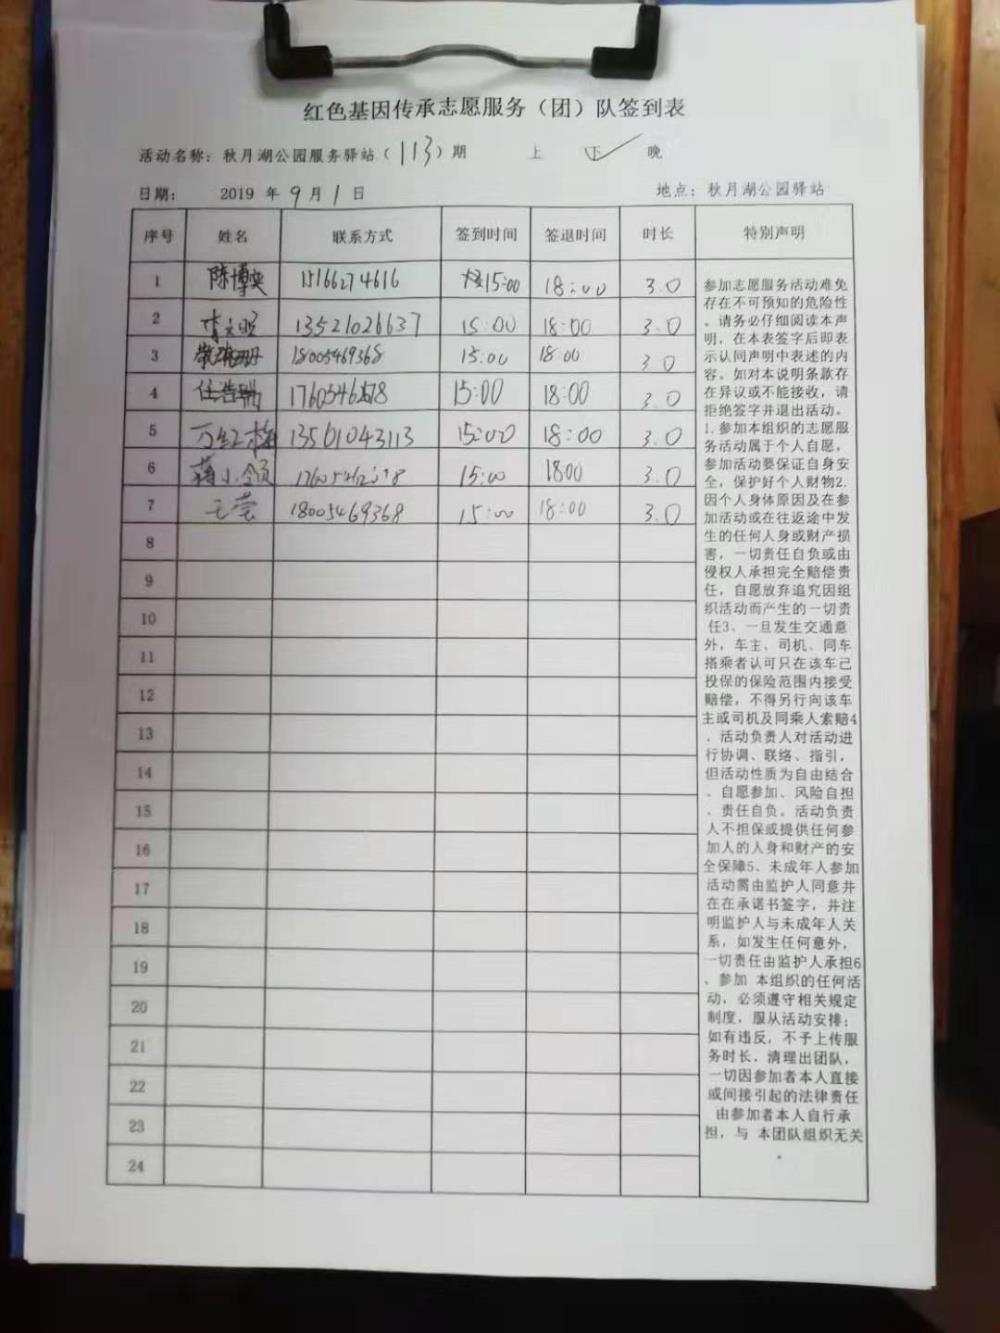 红色基因传承志愿服务（团）队签到表
活动名称：秋月湖公园服务驿站（113）期 上 下✓ 晚
日期： 2019 年 9 月 1 日 地点：秋月湖公园驿站
序号 姓名 联系方式 签到时间 签退时间 时长 特别声明
1 陈博 15166274616 15:00 18:00 3.0
2 李文 13521026637 15:00 18:00 3.0
3 18005469368 15:00 18:00 3.0
4 任浩瑞 15:00 18:00 3.0
5 万红梅 13561043113 15:00 18:00 3.0
6 蒋小领 15:00 1800 3.0
7 王莹 18005469368 15:00 18:00 3.0
8
9
10
11
12
13
14
15
16
17
18
19
20
21
22
23
24
参加志愿服务活动难免
存在不可预知的危险性
，请务必仔细阅读本声
明，在本表签字后即表
示认同声明中表述的内
容。如对本说明条款存
在异议或不能接收，请
拒绝签字并退出活动。
1.参加本组织的志愿服
务活动属于个人自愿，
参加活动要保证自身安
全，保护好个人财物2.
因个人身体原因及在参
加活动或在往返途中发
生的任何人身或财产损
害，一切责任自负或由
侵权人承担完全赔偿责
任，自愿放弃追究因组
织活动而产生的一切责
任3、一旦发生交通意
外，车主、司机、同车
搭乘者认可只在该车已
投保的保险范围内接受
赔偿，不得另行向该车
主或司机及同乘人索赔4
、活动负责人对活动进
行协调、联络、指引，
但活动性质为自由结合
、自愿参加、风险自担
、责任自负。活动负责
人不担保或提供任何参
加人的人身和财产的安
全保障5、未成年人参加
活动需由监护人同意并
在在承诺书签字，并注
明监护人与未成年人关
系，如发生任何意外，
一切责任由监护人承担6
、参加 本组织的任何活
动，必须遵守相关规定
制度，服从活动安排；
如有违反，不予上传服
务时长，清理出团队，
一切因参加者本人直接
或间接引起的法律责任
由参加者本人自行承
担，与 本团队组织无关